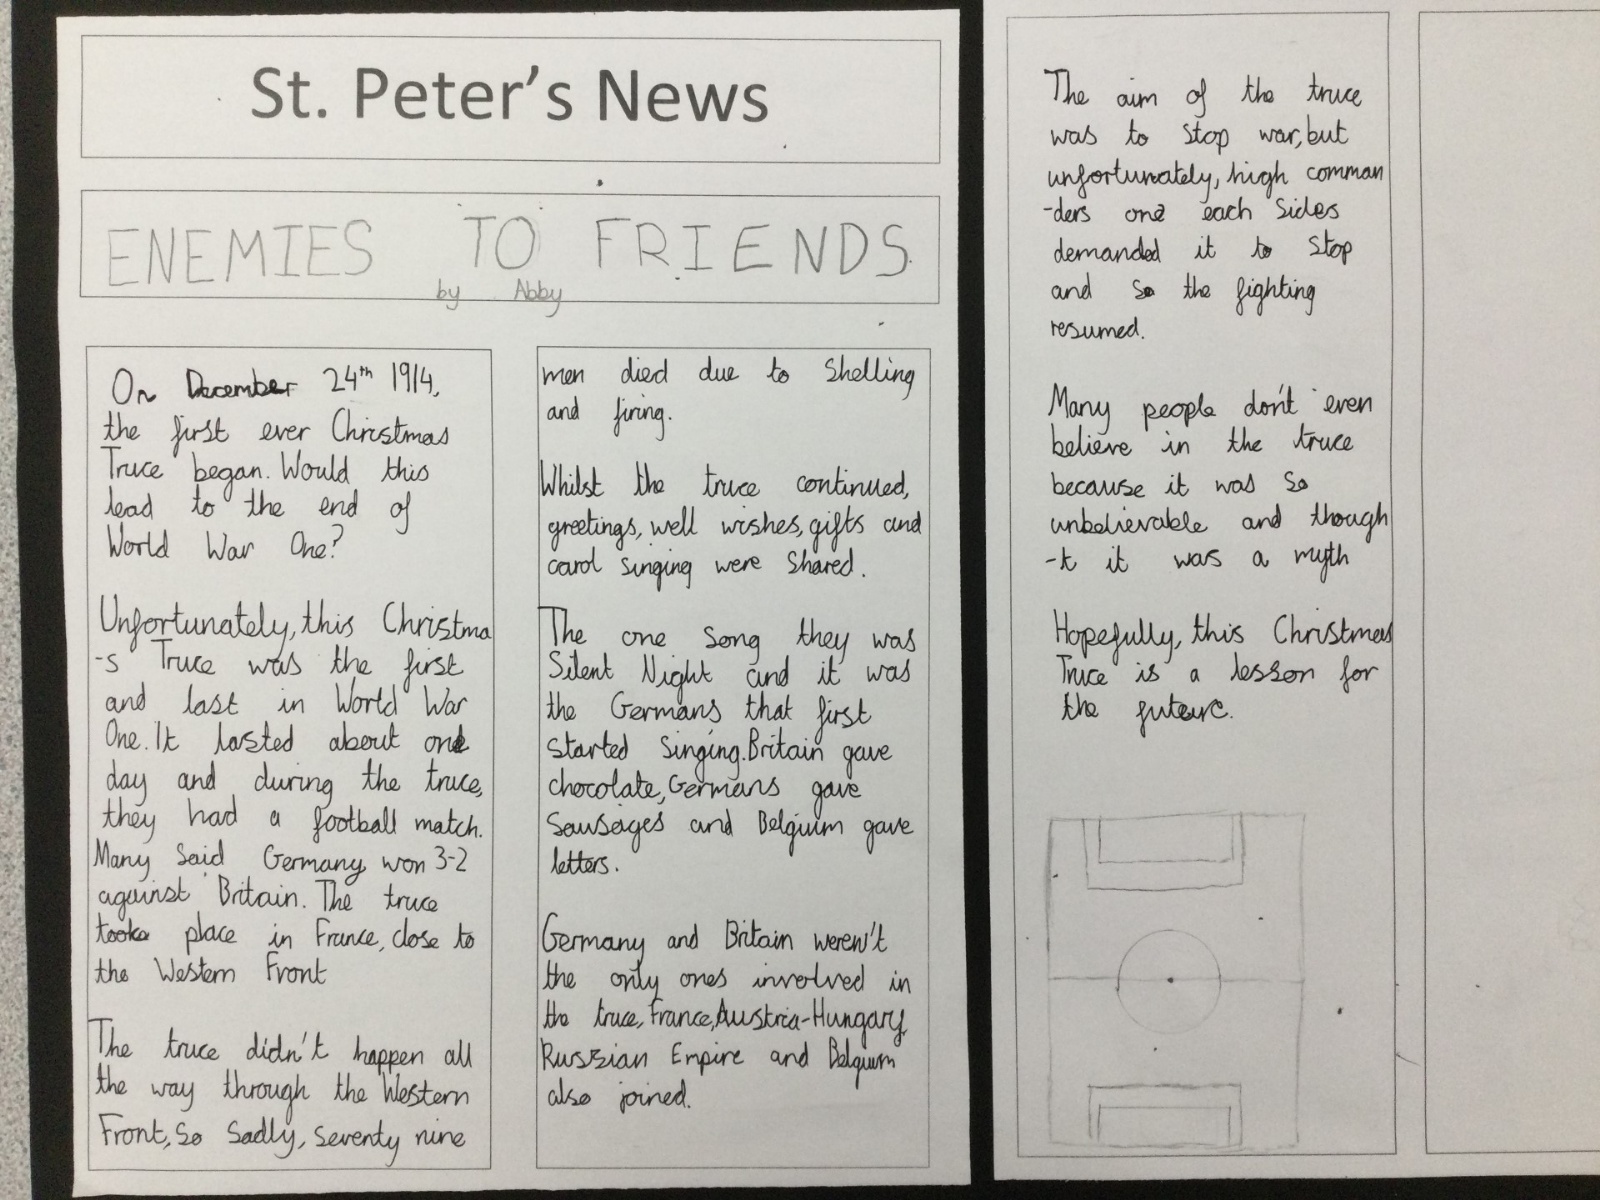 St. Peter's News
ENEMIES TO FRIENDS
by Abby
On December 24th 1914,
the first ever Christmas
Truce began. Would this
lead to the end of
World War One?
Unfortunately, this Christma
-s Truce was the first
and last in World War
One. It lasted about one
day and during the truce,
they had a football match.
Many said Germany won 3-2
against Britain. The truce
took place in France, close to
the Western Front
The truce didn't happen all
the way through the Western
Front, So Sadly, seventy nine
men died due to shelling
and firing.
Whilst the truce continued,
greetings, well wishes, gifts and
carol singing were shared.
The one song they was
Silent Night and it was
the Germans that first
started singing. Britain gave
chocolate, Germans gave
sausages and Belgium gave
letters.
Germany and Britain weren't
the only ones involved in
the truce, France, Austria-Hungary,
Russian Empire and Belgium
also joined.
The aim of the truce
was to stop war, but
unfortunately, high comman
-ders one each sides
demanded it to stop
and so the fighting
resumed.
Many people don't even
believe in the truce
because it was so
unbelievable and though
-t it was a myth
Hopefully, this Christmas
Truce is a lesson for
the future.